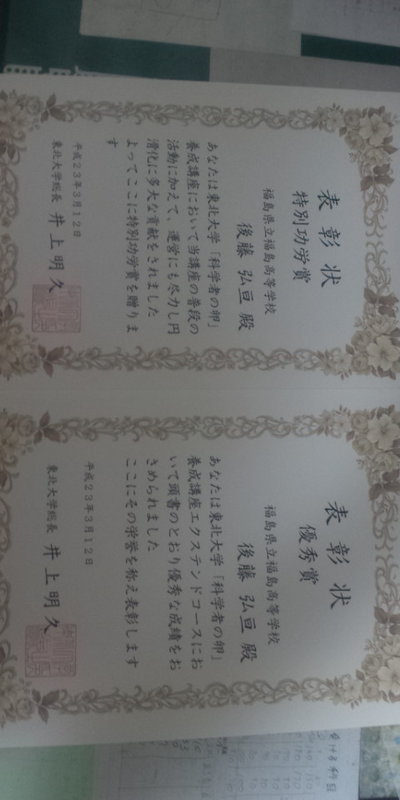 表彰状
特別功学賞
福島県立福島高等学校
後藤 弘亘 殿
あなたは東北大学「科学者の卵」
養成講座において当講座の普段の
活動に加えて、運営にも尽力し円
滑化に多大な貢献をされました
よってここに特別功学賞を贈りま
す
平成23年3月12日
東北大学総長 井上明久
表彰状
優秀賞
福島県立福島高等学校
後藤 弘亘 殿
あなたは東北大学「科学者の卵」
養成講座エクステンドコースにお
いて頭書のとおり優秀な成績をお
さめられました
ここにその栄誉を称え表彰します
平成23年3月12日
東北大学総長 井上明久